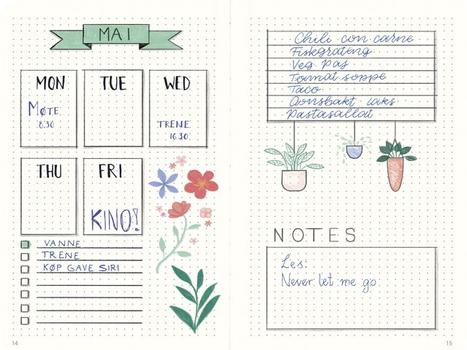 MAI
MON
TUE
WED
MØTE
8.30
TRENE
16.30
THU
FRI
KINO!
VANNE
TRENE
KØP GAVE SIRI
14
Chili con carne
Fiskegrateng
Veg Pas
Tomat soppe
Taco
Ovnsbakt laks
Pastasallat
NOTES
Les:
Never let me go
15